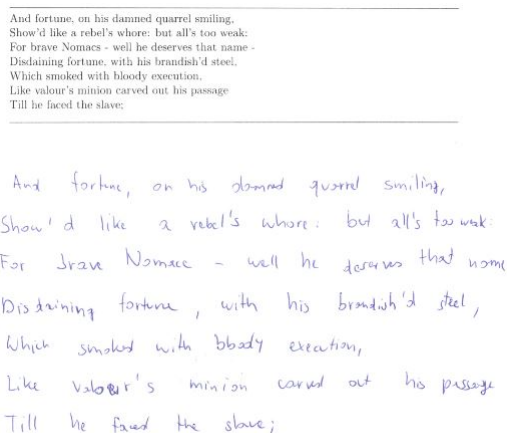 And fortune, on his damned quarrel smiling,
Show'd like a rebel's whore: but all's too weak:
For brave Nomacs - well he deserves that name -
Disdaining fortune, with his brandish'd steel,
Which smoked with bloody execution,
Like valour's minion carved out his passage
Till he faced the slave;
And fortune, on his damned quarrel smiling,
Show'd like a rebel's whore: but all's too weak:
For brave Nomacs - well he deserves that name
Disdaining fortune, with his brandish'd steel,
Which smoked with bloody execution,
Like valour's minion carved out his passage
Till he faced the slave;